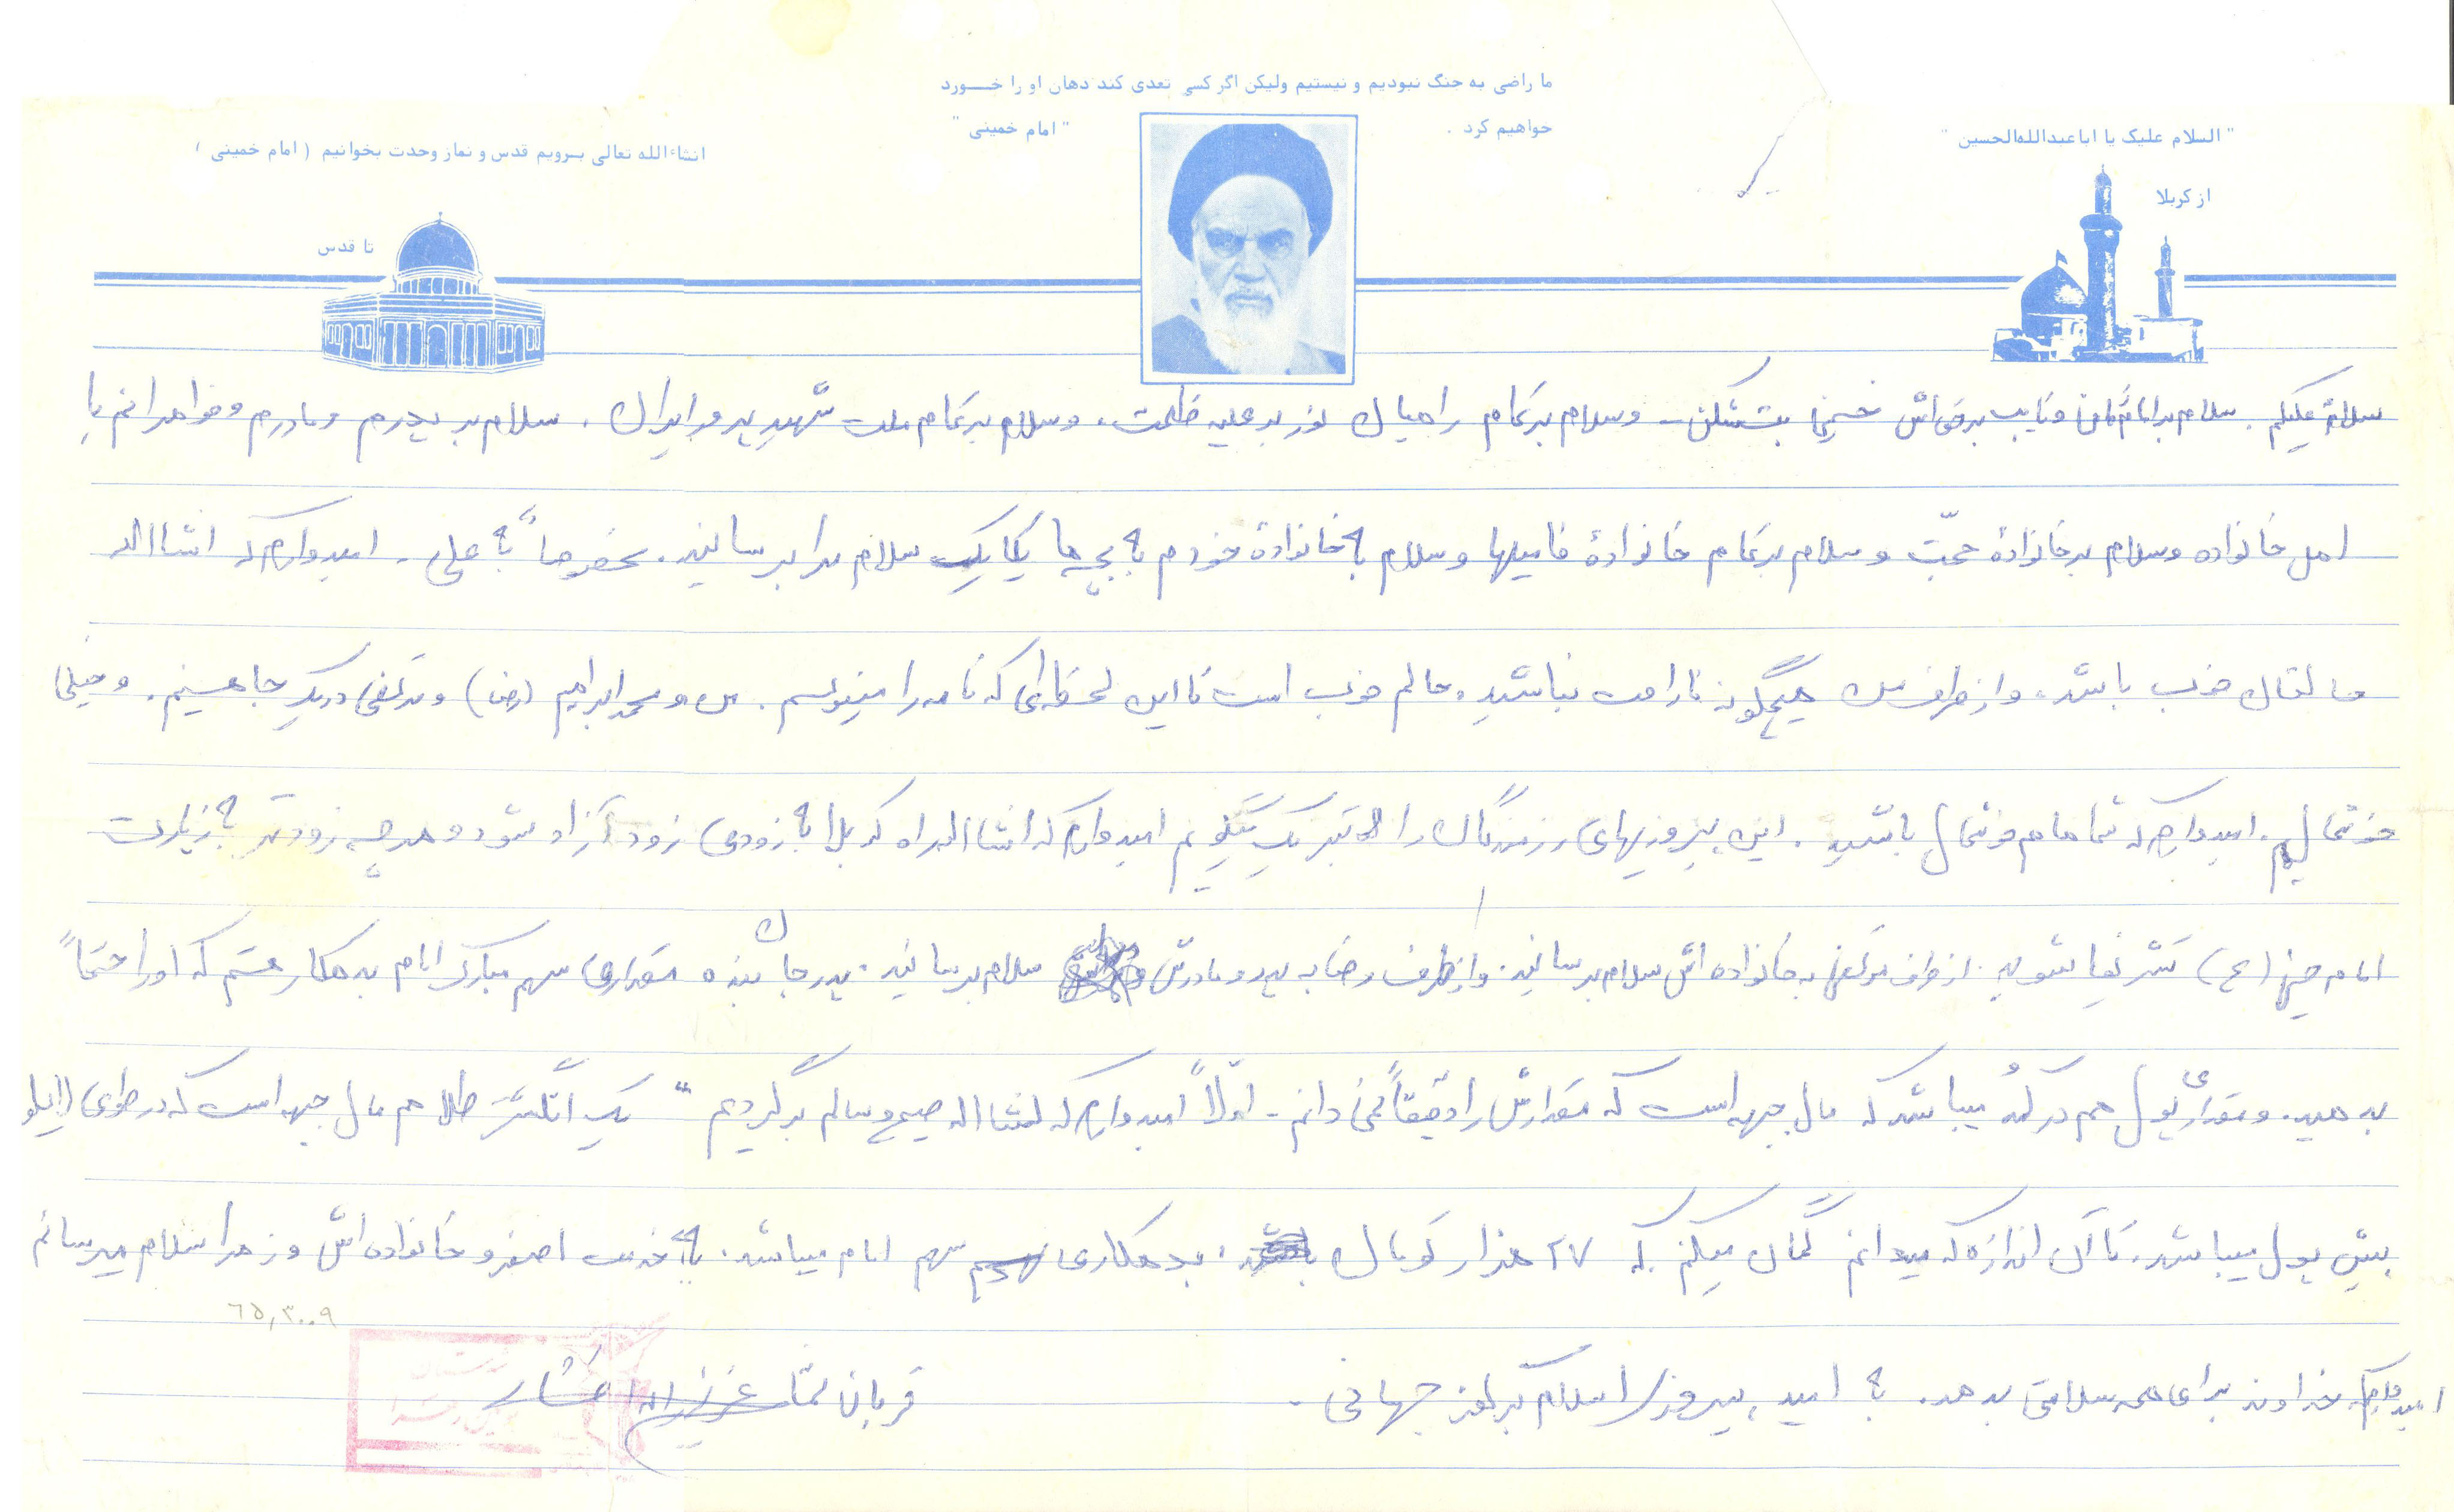 ما راضی به جنگ نبودیم و نیستیم ولیکن اگر کسی تعدی کند دهان او را خـــورد
خواهیم کرد . " امام خمینی "
" السلام علیک یا اباعبدالله‌الحسین "
انشاءالله تعالی بـرویم قدس و نماز وحدت بخوانیم ( امام خمینی )
از کربلا
تا قدس
سلام علیکم . سلام بر امام زمان و نایب برحق‌اش خمینی بت‌شکن - وسلام بر تمام راهیان نور بر علیه ظلمت ، وسلام بر تمام ملت شهیدپرور ایران . سلام بر پدرم و مادرم و خواهرانم با
اهل خانواده وسلام بر خانوادهٔ محبّت وسلام بر تمام خانوادهٔ فامیلها وسلام به خانوادهٔ خودم به بچه‌ها یکایک سلام مرا برسانید . مخصوصاً به علی - امیدوارم که انشاالله
حالتان خوب باشد ، و از طرف من هیچگونه ناراحت نباشید ، حالم خوب است تا این لحظه‌ای که نامه را مینویسم . من و محمد ابراهیم (رضا) و مرتضی در یک جا هستیم . و خیلی
خوشحالیم . امیدوارم که شما هم خوشحال باشید . این پیروزیهای رزمندگان را تبریک میگویم امیدوارم که انشاالله راه کربلا به زودی زود آزاد شود و هرچه زودتر به زیارت
امام حسین (ع) مشرف شوید . از طرف مرتضی به خانواده‌اش سلام برسانید . و از طرف رضا به پدر و مادرش سلام برسانید . پدر جان بنده مقداری سهم مبارک امام بدهکار هستم که او را حتماً
بدهید . و مقداری پول هم در کمد میباشد که مال جبهه است که مقدارش را دقیقاً نمی‌دانم - اولاً امیدوارم که انشاالله صحیح و سالم برگردیم " یک انگشتر طلا هم مال جبهه است که در طوی
پیش پول میباشد . تا آن اندازه که میدانم گمان میکنم که ۲۷ هزار تومان بدهکاری سهم امام میباشد . به خدمت اصغر و خانواده‌اش و زهرا سلام میرسانم
امیدوارم که خداوند برای همه سلامتی بدهد . به امید پیروزی اسلام بر کفر جهانی .
قربان شما عزیزالله
۶۵,۳۰۰۹